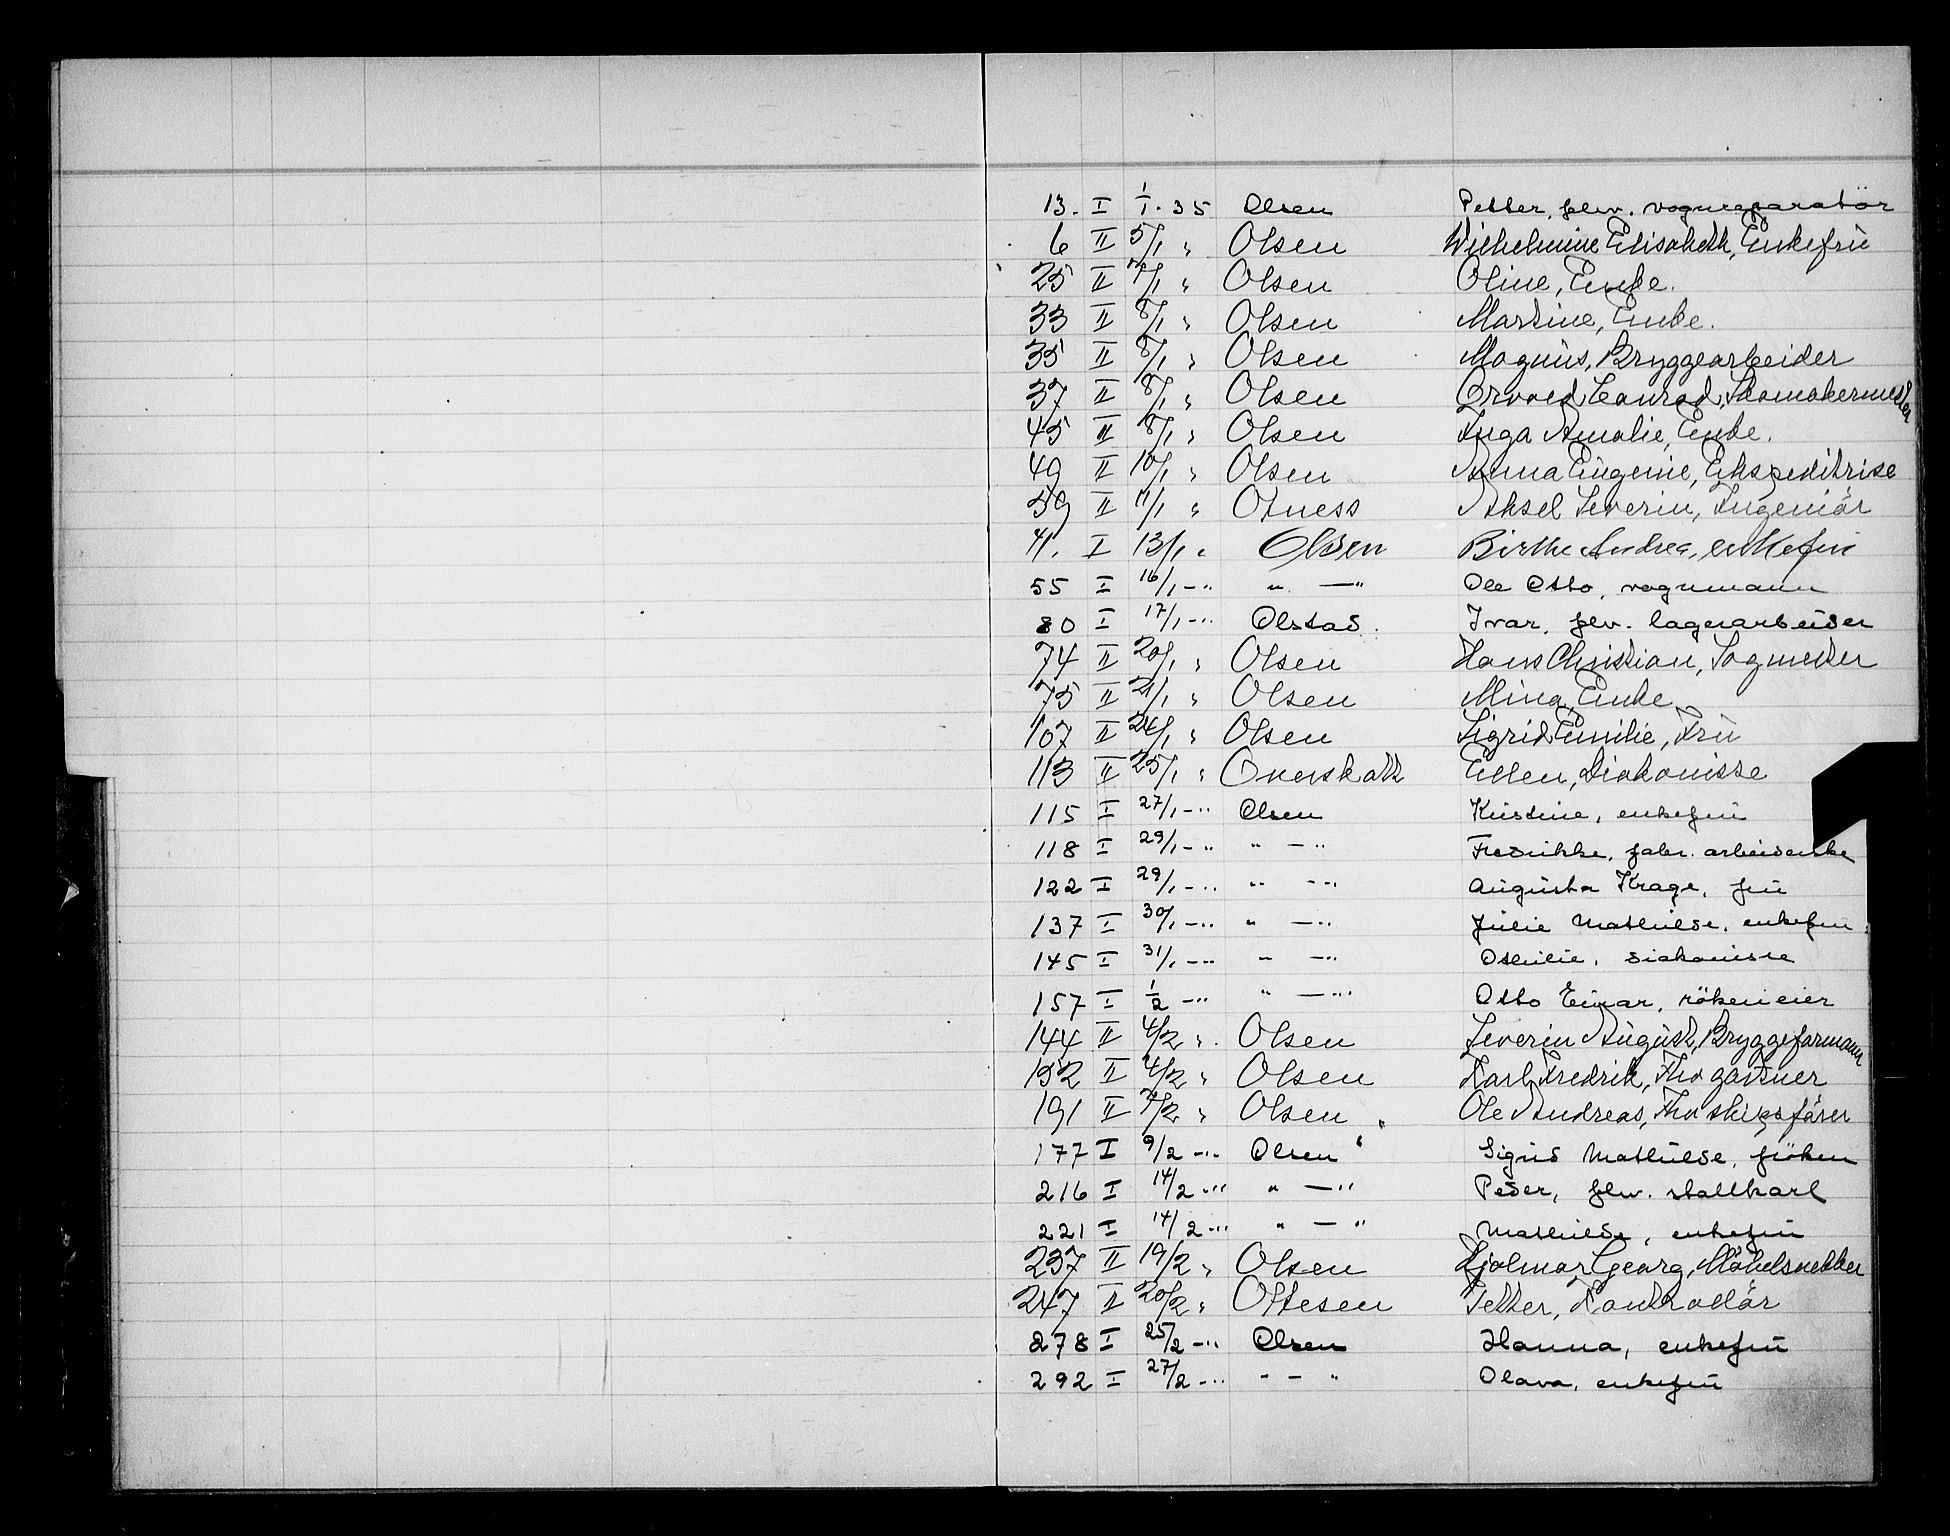 13. I 1/1.35 Olsen Petter, fhv. vognreparatör
6 II 5/1 " Olsen Wilhelmine Elisabeth, Enkefrú
25 II 7/1 " Olsen Oline, Enke.
33 II 8/1 " Olsen Martine, Enke.
35 II 8/1 " Olsen Magnús, Bryggearbeider
37 II 8/1 " Olsen Orvald Conrad, Skomakermester
45 II 8/1 " Olsen Inga Amalie, Enke.
49 II 10/1 " Olsen Anna Eúgenie, Ekspeditrise
59 II 11/1 " Otness Aksel Severin, Ingeniör
41. I 13/1 " Olsen Birthe Andrea, enkefrú
55 I 16/1 -"- " —" Ole Otto, vognmann
80 I 17/1 -"- Olstad. Ivar, fhv. lagerarbeider
74 II 20/1 " Olsen Hans Christian, Sagmester
75 II 21/1 " Olsen Mina, Enke
107 II 24/1 " Olsen Sigrid Emilie, Frú
113 II 25/1 " Overskott Ellen, Diakonisse
115 I 27/1 -"- Olsen Kristine, enkefrú
118 I 29/1 -"- " — " Fredrikke, fabr. arbeiderske
122 I 29/1 -"- " — " Aúgústa Krage, frú
137 I 30/1 -"- " — " Júlie Mathilde, enkefrú
145 I 31/1 -"- " — " Othilie, diakonisse
157 I 1/2 -"- " — " Otto Einar, råkeneier
144 II 4/2 " Olsen Severin Aúgúst, Bryggeformann
152 II 4/2 " Olsen Karl Fredrik, Fhv gartner
191 II 7/2 " Olsen Ole Andreas, Fhv skipsförer
177 I 9/2 -"- Olsen Sigrid Mathilde, fröken
216 I 14/2 -"- " — " Peder, fhv. stallkarl
221 I 14/2 -"- " — " Mathilde, enkefrú
237 II 19/2 " Olsen Hjalmar Georg, Möbelsnekker
247 II 20/2 " Ottesen Petter, Kontrollör
278 I 25/2 -"- Olsen Hanna, enkefrú
292 I 27/2 -"- " — " Olava, enkefrú